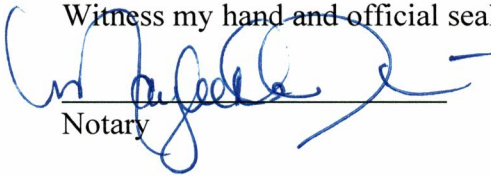 Witness my hand and official seal
Notary